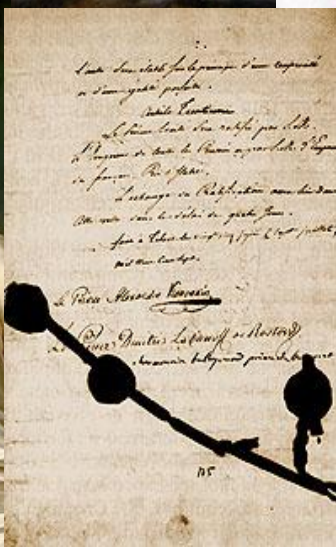 sera établi sur le principe d'une réciprocité
et d'une égalité parfaite.
Article
Le présent traité sera ratifié par S. M.
l'Empereur de toutes les Russies et par S. M. l'Empereur
des français, Roi d'Italie.
L'échange des Ratifications aura lieu dans
cette ville dans le délai de quatre jours.
fait à Tilsit le vingt cinq juin sept juillet
mil huit cent sept.
Le Prince Alexandre Kourakin
Le Prince Dmitry Labanoff de Rostoff